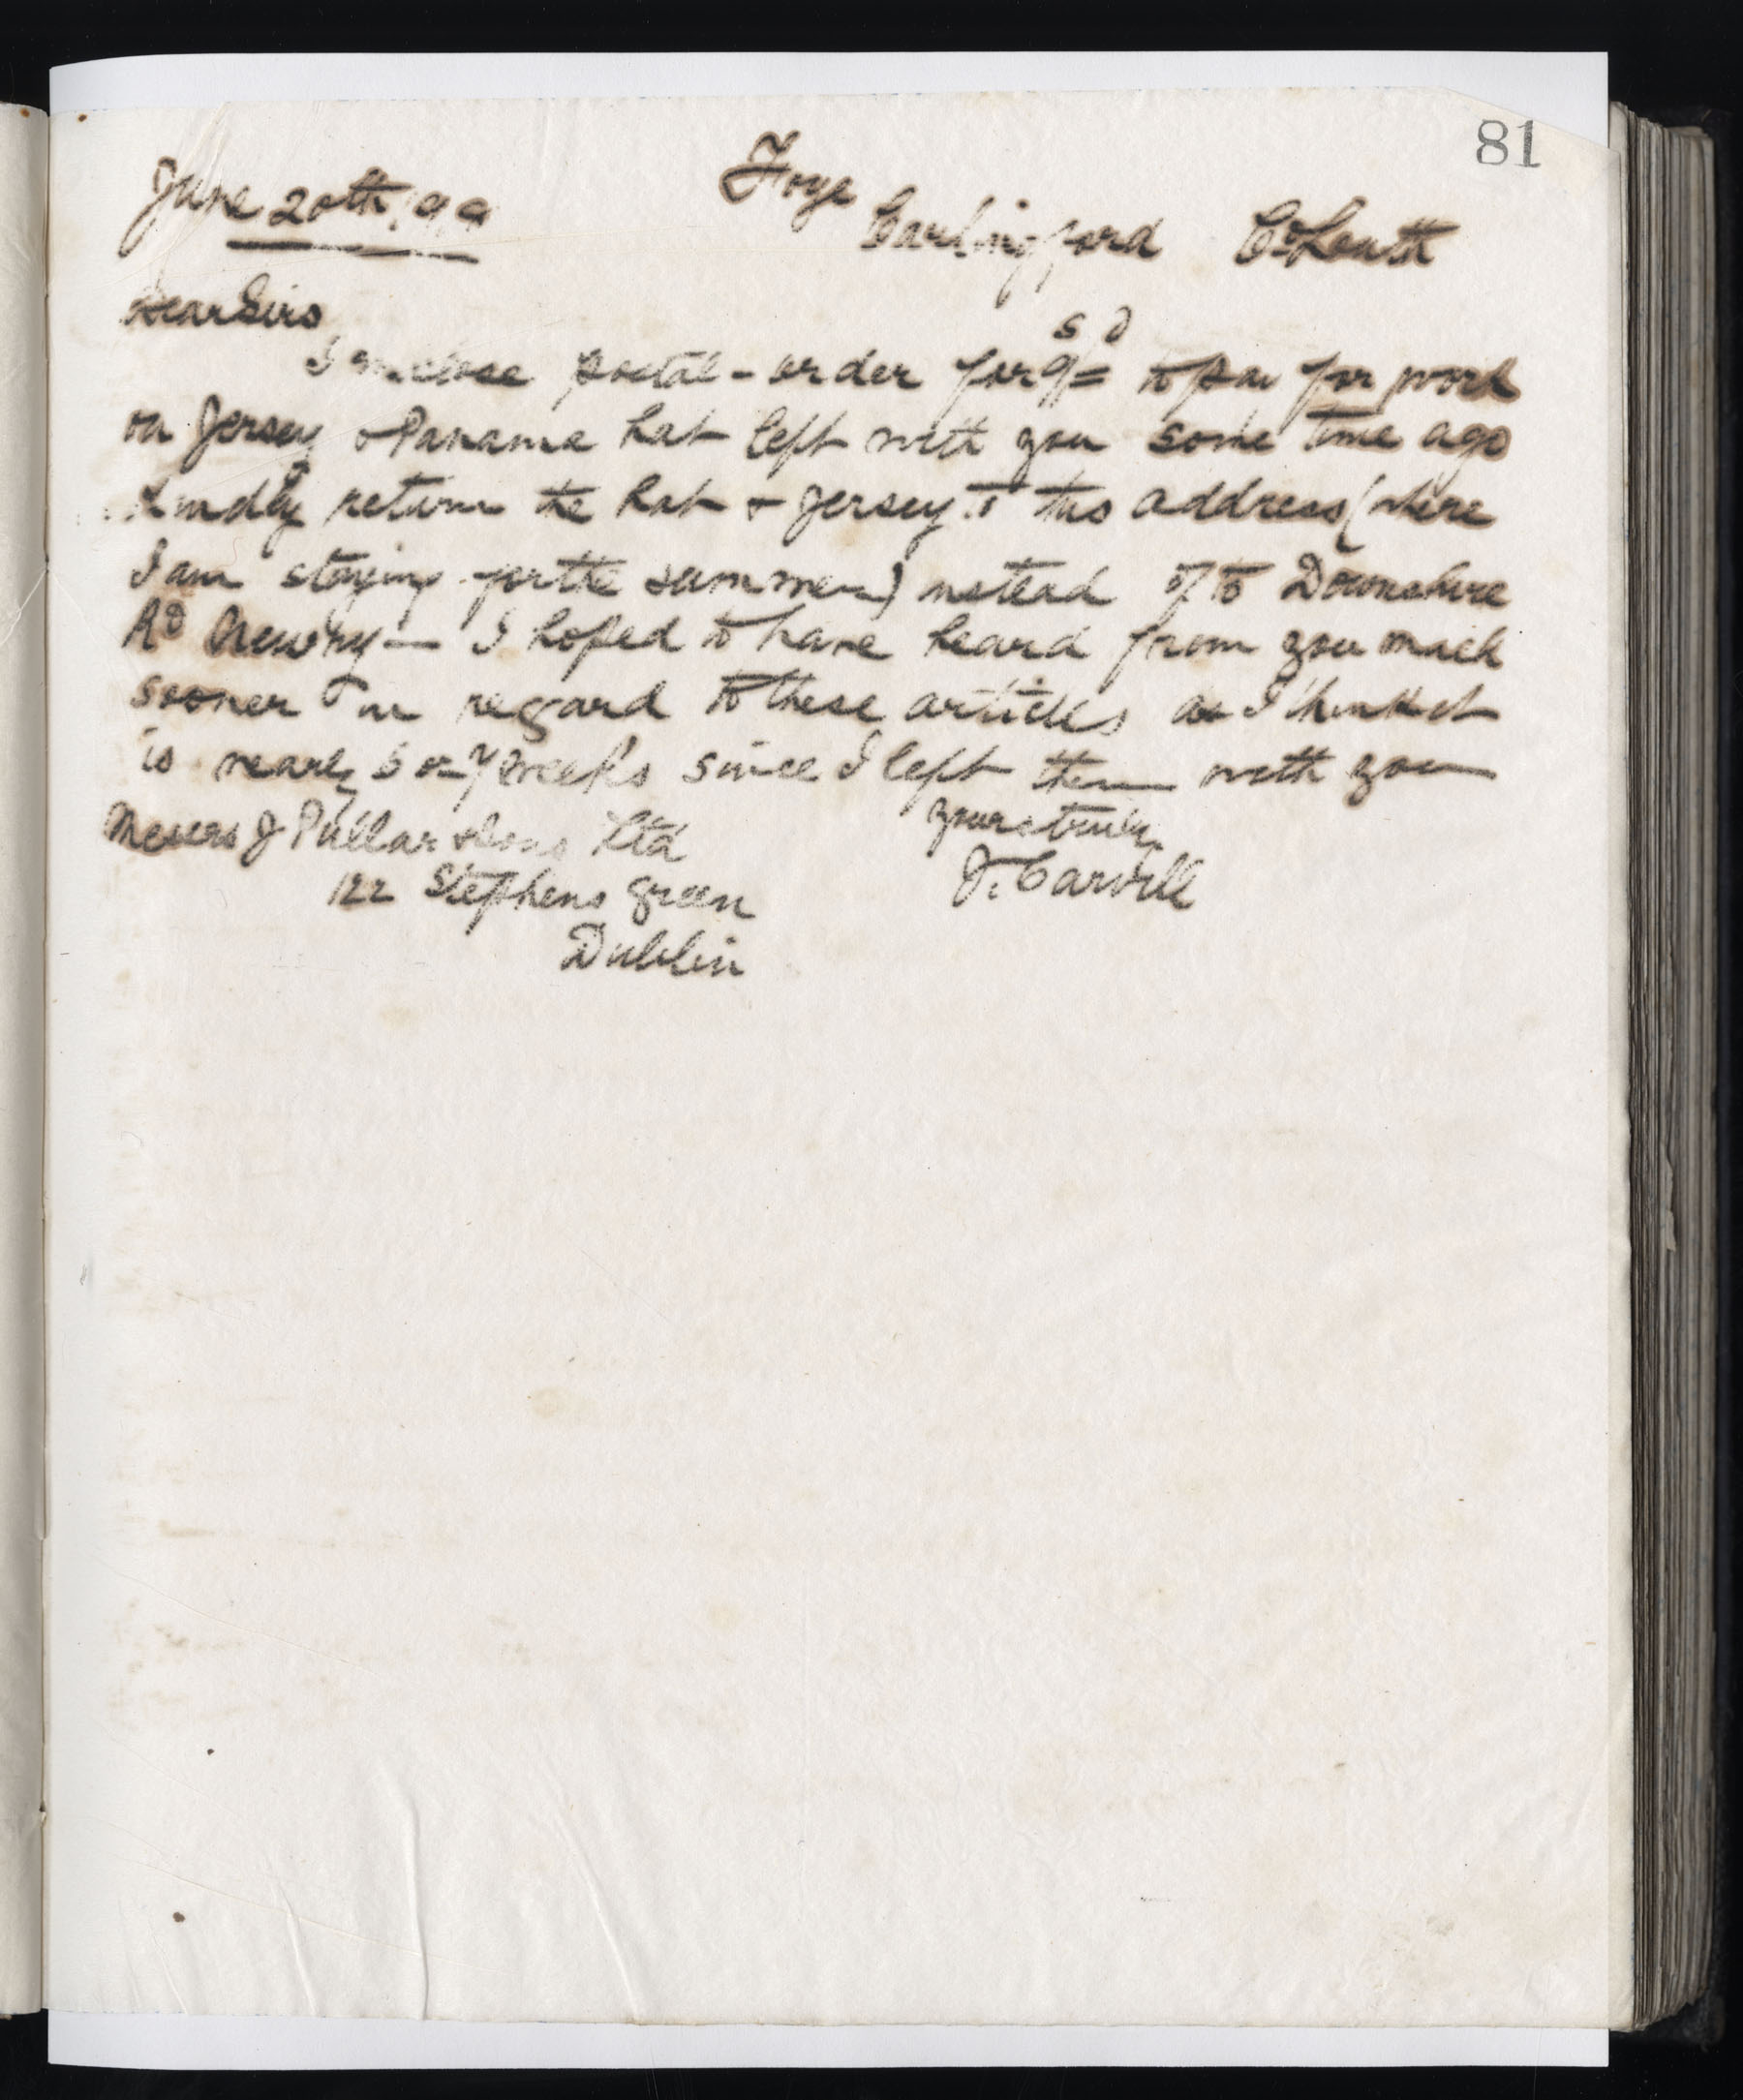 81
June 20th /99 Foye
Carlingford Co Louth
Dear Sirs
s d
I enclose postal-order for 9/= to pay for work
on Jersey & Panama hat left with you some time ago
Kindly return the hat & Jersey to this address (where
I am staying for the summer) instead of to Downshire
Rd Newry — I hoped to have heard from you much
sooner in regard to these articles as I think it
is nearly 6 or 7 weeks since I left them with you
yours truly
Messrs J Pullar & Sons Ltd
J. Carvill
122 Stephens Green
Dublin